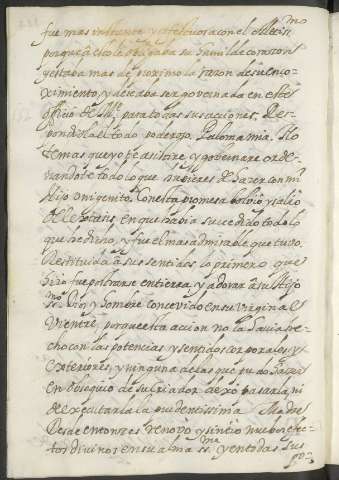 fue mas instante y afectuosa con el Altissmo
porque a esto le obligaba su humilde corazon
y estaba mas de proximo la razon de su enco-
ximiento, y deseaba ser governada en este
officio de Me para todas sus acciones. Res-
pondiola el todo poderoso. Paloma mia. No
temas que yo te assistire y gobernare orde-
nandote todo lo que hubieres de hazer con mi
Hijo unigenito. Con esta promesa bolvio y salio
de el extasis, en que habia sucedido todo lo
que he dicho, y fue el mas admirable que tuvo.
Restituida a sus sentidos lo primero que
hizo fue postrarse en tierra y adorar a su Hijo
SSmo Dios y hombre concevido en su virginal
Vientre, porque esta accion no la havia he-
cho con las potencias y sentidos corporales y
exteriores, y ninguna de las que pudo hazer
en obsequio de su criador dexo passarla ni
de executarla la prudentissima Madre
Desde entonzes renovo y sintio nuebos efec-
tos divinos en su alma Sma y en todas sus
po-